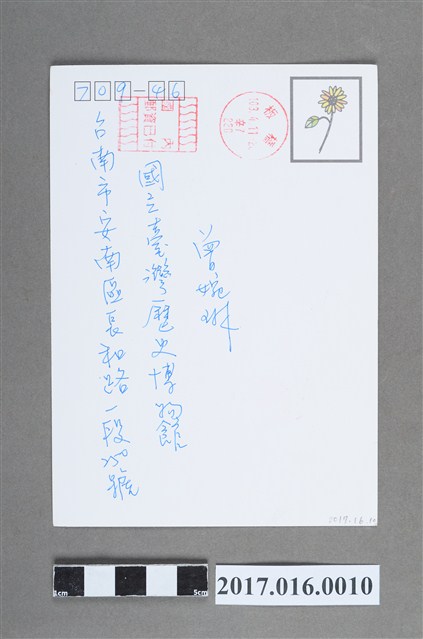 709-46
國內
郵資已付
板橋
台南市安南區長和路一段250號
國立臺灣歷史博物館
曾婉琳
2017.16.10
1cm
5cm
2017.016.0010